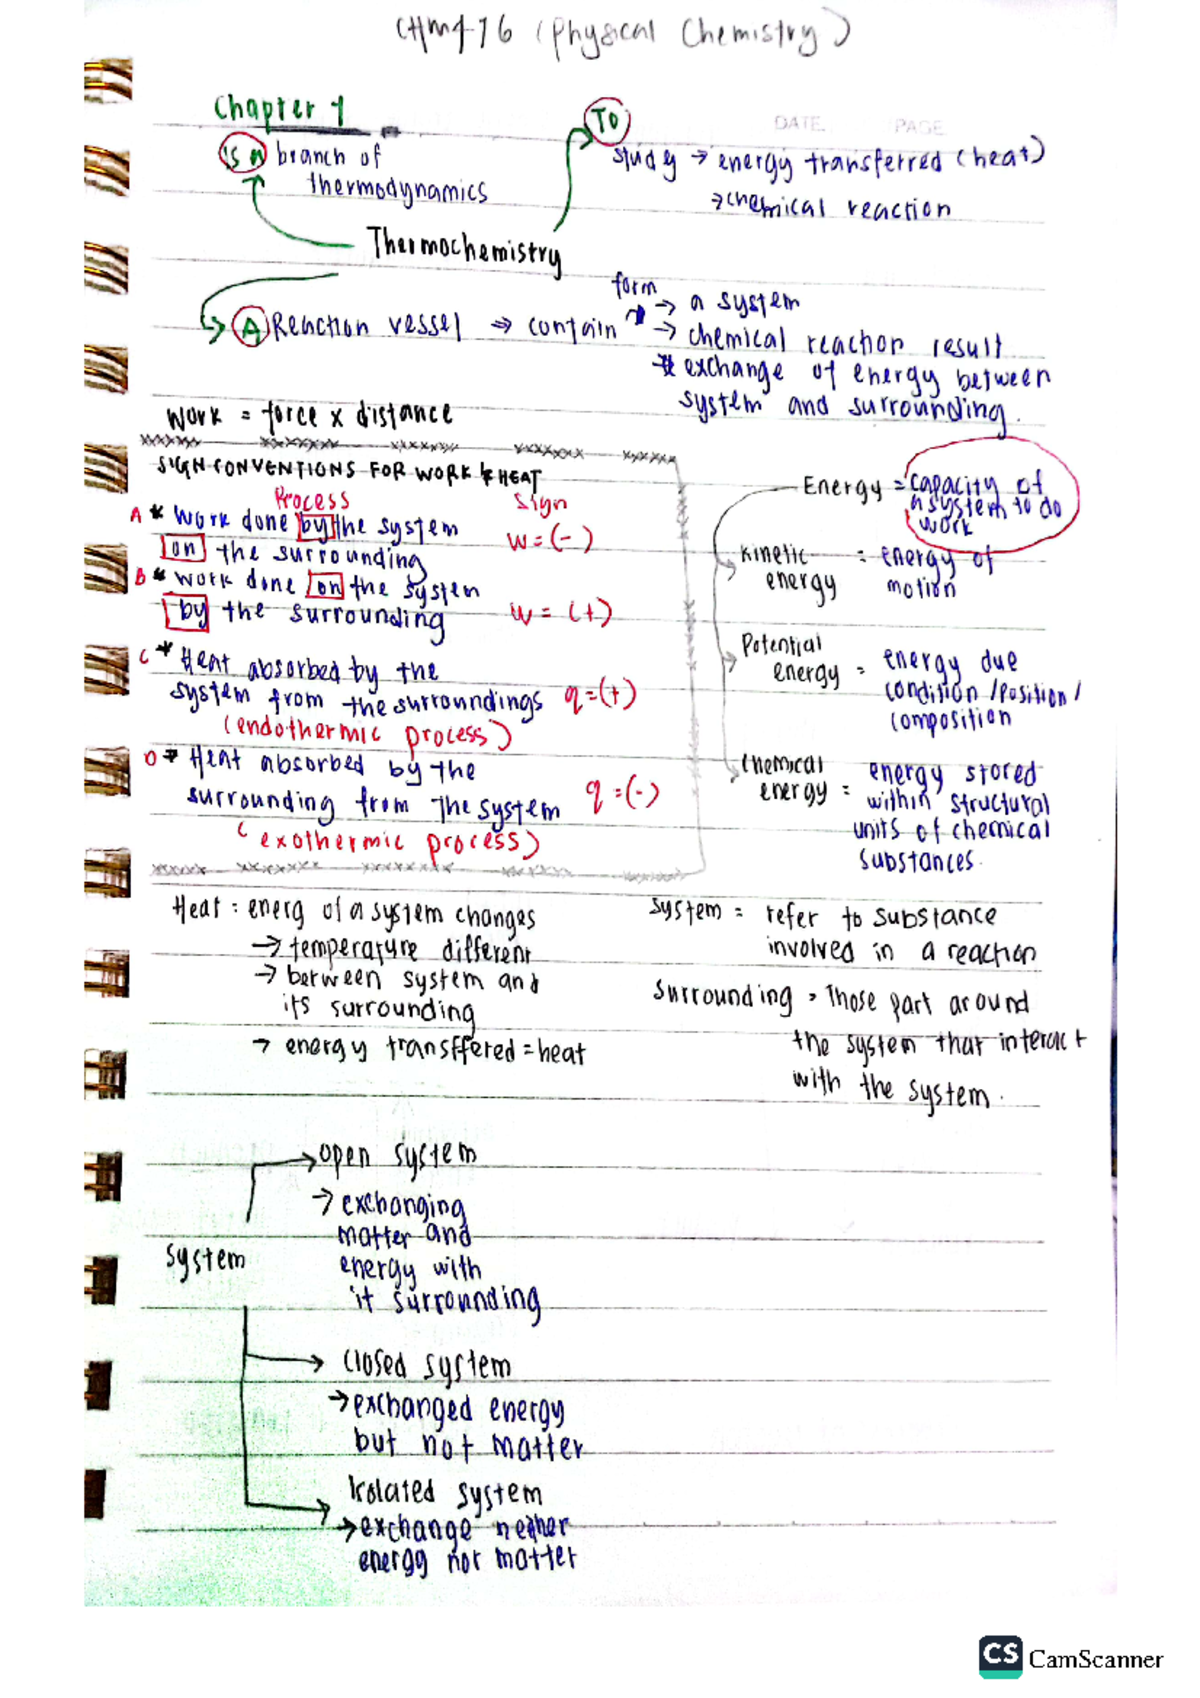 CHM476 (Physical Chemistry)
Chapter 1
is a branch of
thermodynamics
TO
DATE PAGE
study → energy transferred (heat)
→ chemical reaction
Thermochemistry
A Reaction vessel → contain
form
→ a system
→ chemical reaction result
* exchange of energy between
system and surrounding.
Work = force x distance
SIGN CONVENTIONS FOR WORK & HEAT
Process Sign
A * Work done by the system
on the surrounding
w = (-)
B * work done on the system
by the surrounding
w = (+)
C * Heat absorbed by the
system from the surroundings q = (+)
(endothermic process)
D * Heat absorbed by the
surrounding from the system q = (-)
(exothermic process)
Energy = capacity of
a system to do
work
Kinetic = energy of
energy motion
Potential
energy = energy due
condition / position /
composition
Chemical
energy = energy stored
within structural
units of chemical
substances.
Heat : energ of a system changes
→ temperature different
→ between system and
its surrounding
→ energy transffered = heat
System = refer to substance
involved in a reaction
Surrounding = Those part around
the system that interact
with the system.
System
→ open system
→ exchanging
matter and
energy with
it surrounding
→ closed system
→ exchanged energy
but not matter
→ Isolated system
→ exchange neither
energy nor matter
CS CamScanner